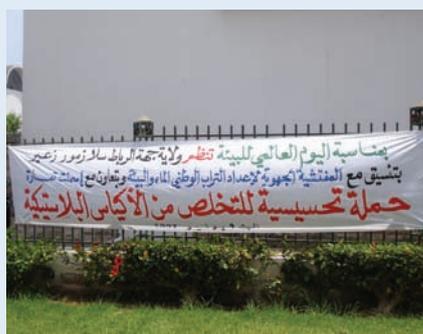 بمناسبة اليوم العالمي للبيئة تنظم ولاية جهة الرباط سلا زمور زعير
بتنسيق مع المفتشية الجهوية لإعداد التراب الوطني الماء والبيئة وبتعاون مع
حملة تحسيسية للتخلص من الأكياس البلاستيكية